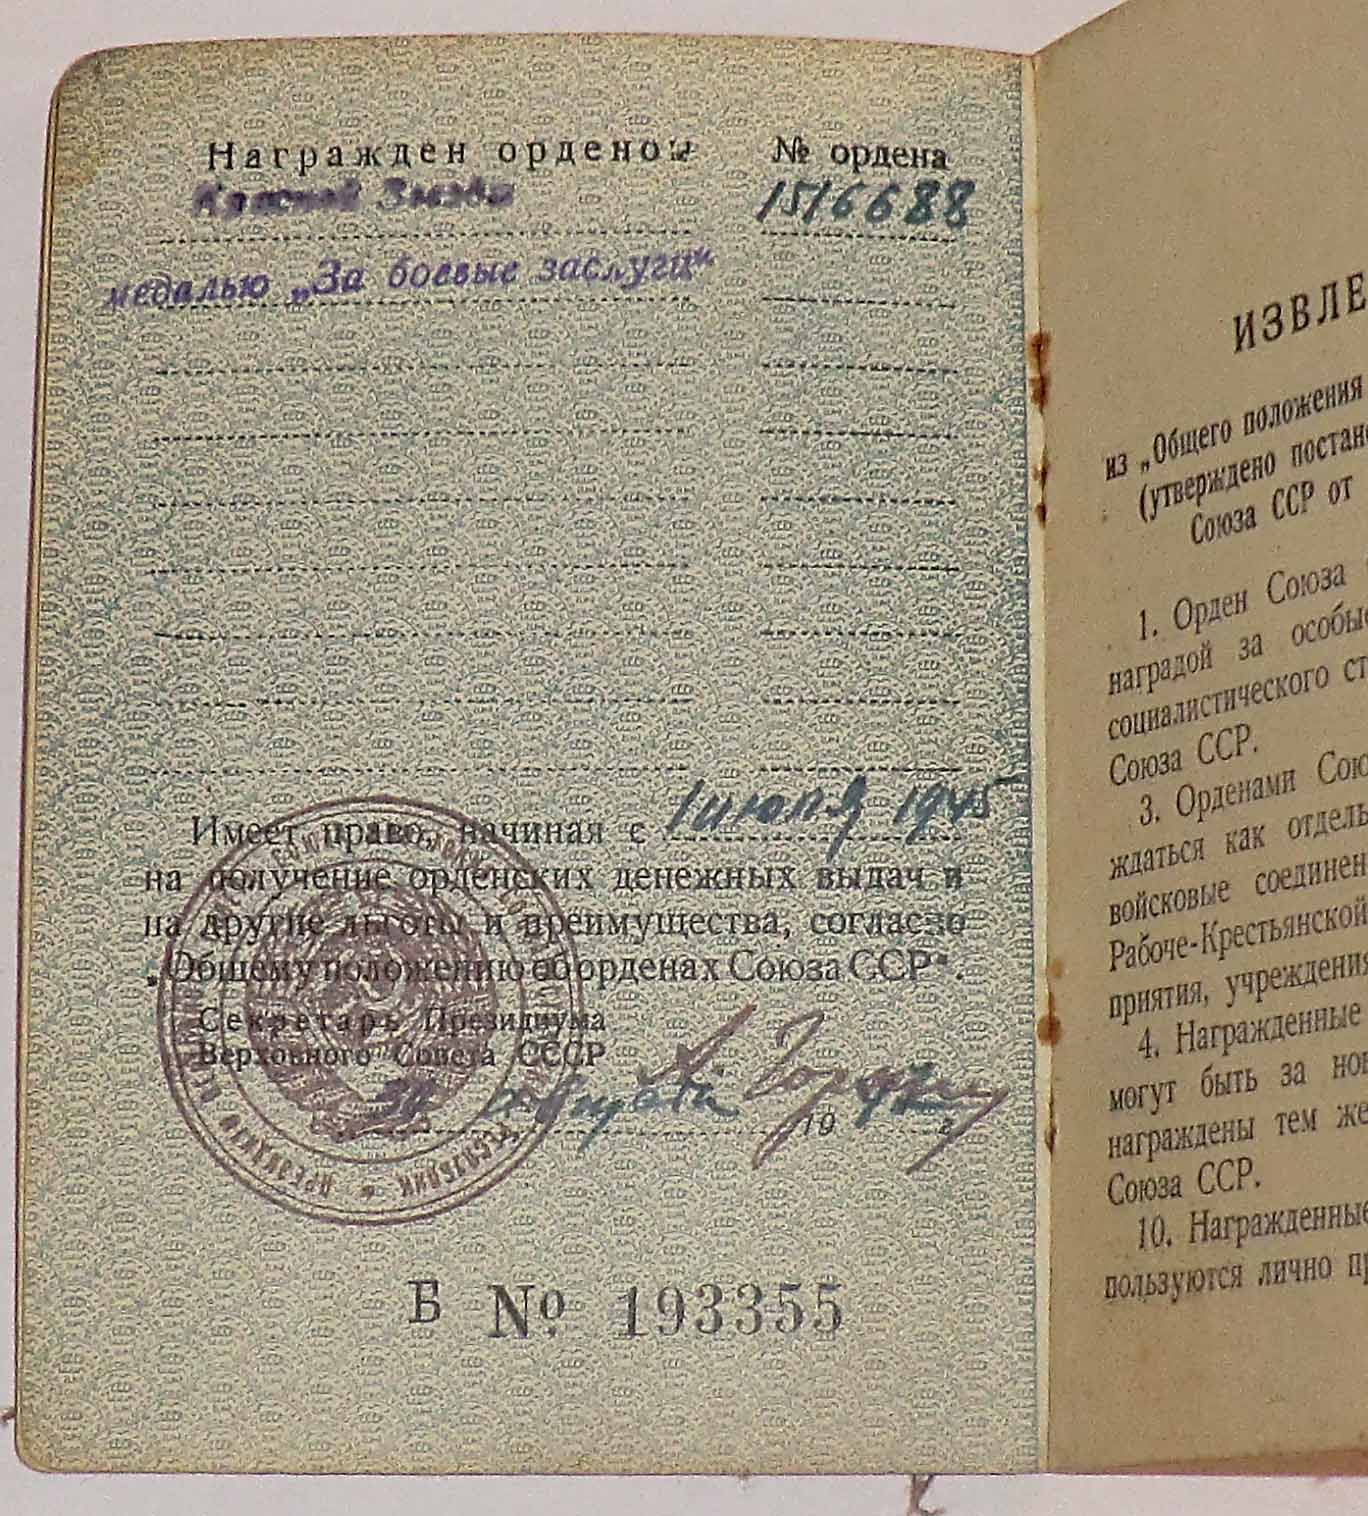 Награжден орденом № ордена
Красной Звезды 1516688
медалью „За боевые заслуги“
Имеет право, начиная с 1 июля 1945
на получение орденских денежных выдач и
на другие льготы и преимущества, согласно
„Общему положению об орденах Союза ССР“.
Секретарь Президиума
Верховного Совета СССР
августа 19 г.
Б № 193355
ИЗВЛЕ
из „Общего положения
(утверждено постан
Союза ССР от
1. Орден Союза
наградой за особые
социалистического ст
Союза ССР.
3. Орденами Сою
ждаться как отдель
войсковые соединен
Рабоче-Крестьянской
приятия, учреждения
4. Награжденные
могут быть за нов
награждены тем же
Союза ССР.
10. Награжденные
пользуются лично пр